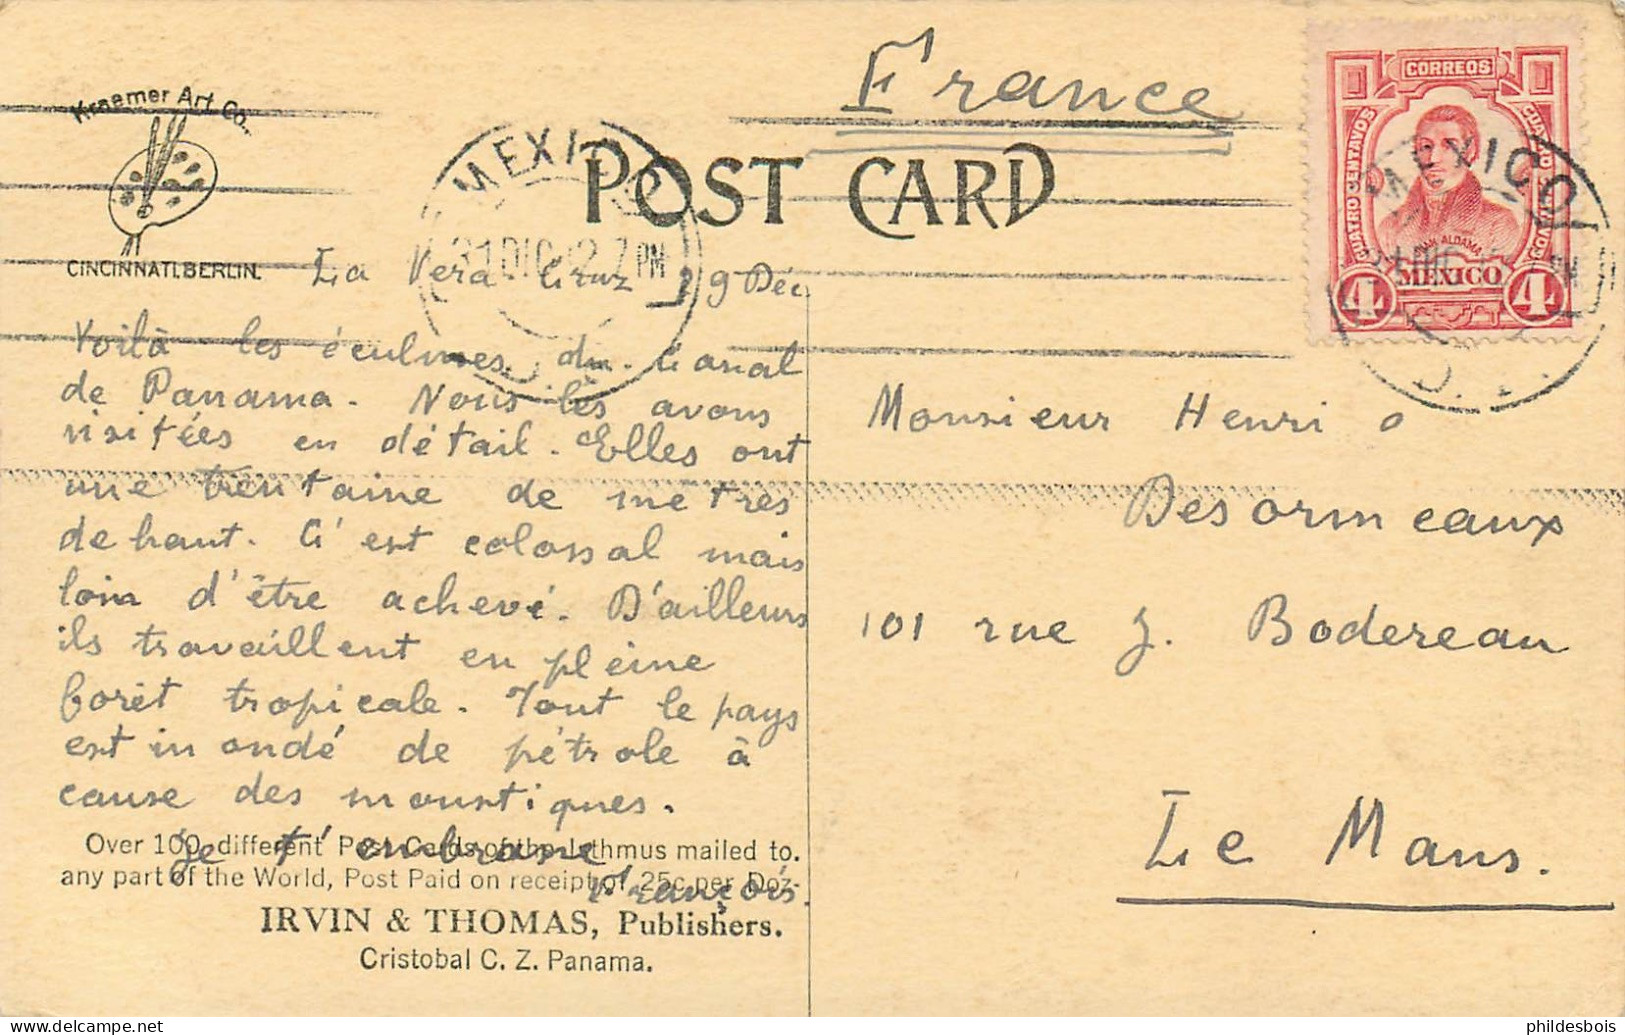 France
Kraemer Art Co.
CINCINNATI.BERLIN.
POST CARD
MEXICO
31 DIC 12 7 PM
CORREOS
CUATRO CENTAVOS
CUATRO CENTAVOS
JUAN ALDAMA
MEXICO
4 4
MEXICO
D.F.
La Vera Cruz 29 Déc
Voilà les écluses du Canal
de Panama. Nous les avons
visitées en détail. Elles ont
une trentaine de metres
de haut. C'est colossal mais
loin d'être achevé. D'ailleurs
ils travaillent en pleine
forêt tropicale. Tout le pays
est inondé de pétrole à
cause des moustiques.
Je t'embrasse
François.
Monsieur Henri
Desormeaux
101 rue J. Bodereau
Le Mans.
Over 100 different Post Cards of the Isthmus mailed to.
any part of the World, Post Paid on receipt of 25c per Doz.
IRVIN & THOMAS, Publishers.
Cristobal C. Z. Panama.
delcampe.net
phildesbois